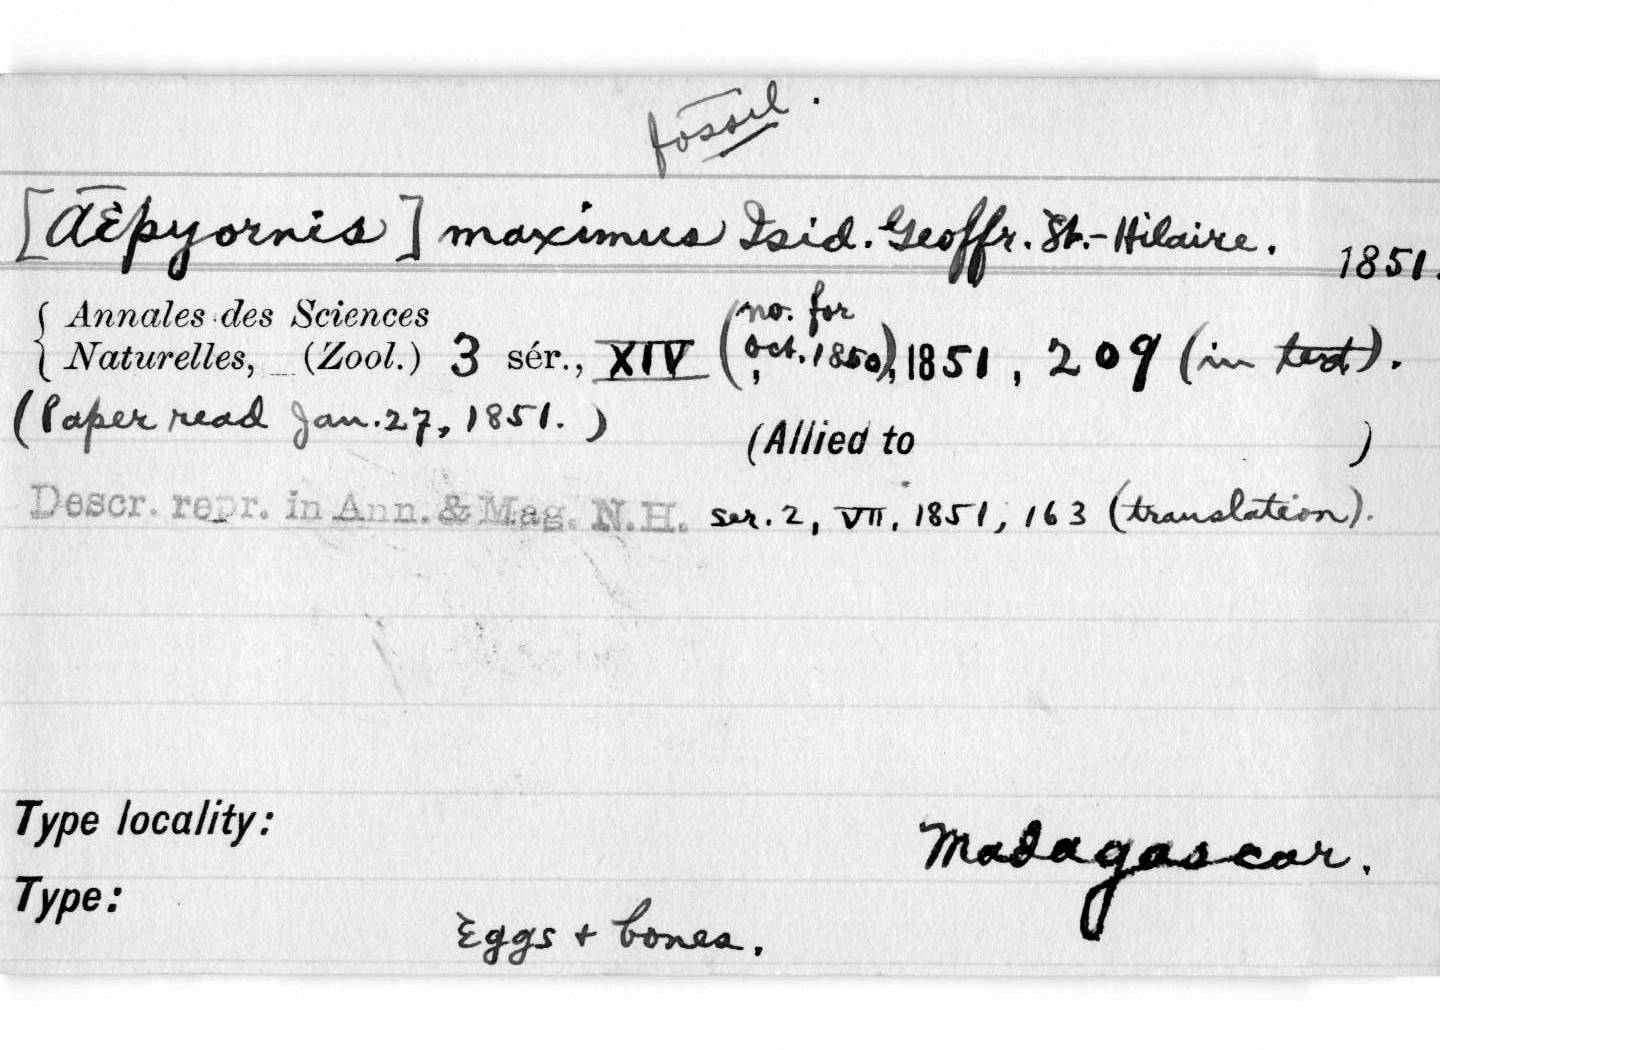 fossil.
[Æpyornis] maximus Isid. Geoffr. St.-Hilaire. 1851.
Annales des Sciences
Naturelles, (Zool.) 3 sér., XIV (no. for Oct. 1850), 1851, 209 (in text).
(Paper read Jan. 27, 1851.) (Allied to )
Descr. repr. in Ann. & Mag. N.H. ser. 2, VII, 1851, 163 (translation).
Type locality: Madagascar.
Type: Eggs + bones.